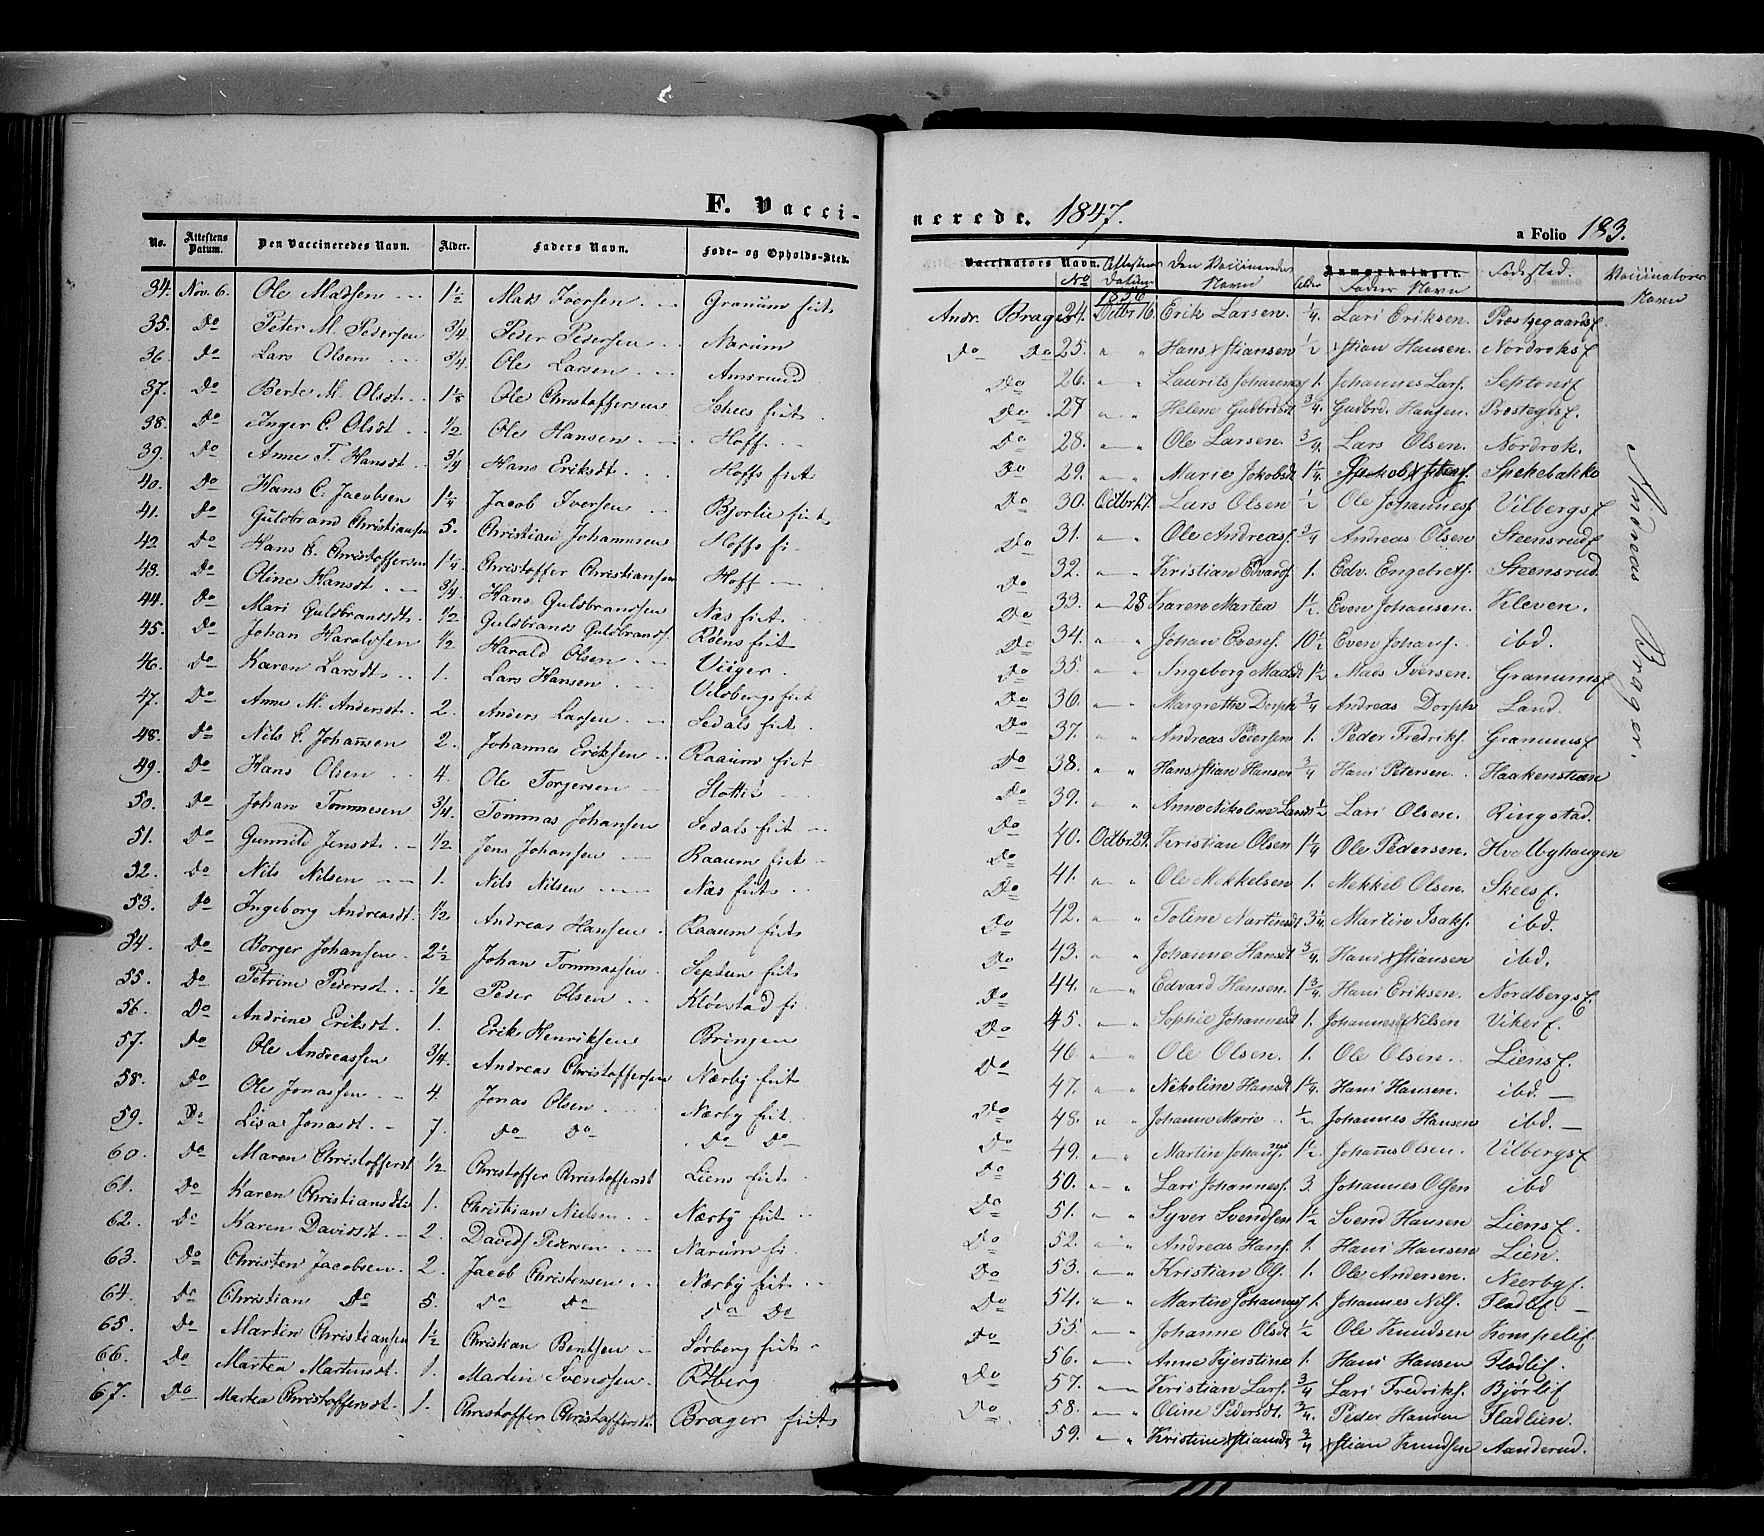 F. Vacci-
No. Attestens Datum. Den Vaccineredes Navn. Alder. Faders Navn. Føde- og Opholds-Sted.
34. Nov. 6. Ole Madsen 1½ Mads Iversen Granum fiet
35. Do Peter M. Pedersen ¾ Peder Pedersen Narum
36. Do Lars Olsen ¾ Ole Larsen Amsrund
37. Do Berte M. Olsdt. Ole Christoffersen Skees fiet
38. Do Inger C. Olsdt ½ Ole Hansen Hoff
39. Do Anne T. Hansdt ¾ Hans Hoffs fiet
40. Do Hans C. Jacobsen 1¼ Jacob Iversen Bjørlie fiet
41. Do Guldbrand Christiansen 5. Christian Johannesen Hoffs fi
42 Do Hans C. Christoffersen 1¼ Christoffer Christiansen Hoff
43. Do Oline Hansdt ¾ Hans Guldbrandsen Næs fiet
44. Do Mari Guldbrandsdt. ½ Guldbrand Guldbrands. Røens fiet
45. Do Johan Haraldsen ½ Harald Olsen Viiger
46. Do Karen Larsdt 1. Lars Hansen Vildbergs fiet
47. Do Anne M. Andersdt. 2. Anders Larsen Sedals fiet
48. Do Nils C. Johansen 2. Johannes Eriksen Raaum fiet
49. Do Hans Olsen 4. Ole Torgersen Slottet
50. Do Johan Tommesen ¾ Tommas Johansen Sedals fiet
51. Do Gunnild Jensdt ½ Jens Johansen Raaum fiet
52. Do Nils Nilsen 1. Nils Nilsen Næs fiet
53. Do Ingeborg Andreasdt. ½ Andreas Hansen Raaum fiet
54. Do Borger Johansen 2½ Johan Tommassen Septun fiet
55. Do Petrine Pedersdt. ½ Peder Olsen Kløvstad fi
56. Do Andrine Eriksdt. 1. Erik Henriksen Bringen
57. Do Ole Andreassen ¾ Andreas Christoffersen Nærby fiet
58. Do Ole Jonassen 4 Jonas Olsen Nærby fiet
59. Do Lisa Jonasdt. 7. Do Do Do Do
60. Do Maren Christoffersdt ½ Christoffer Christoffersdt Liens fiet
61. Do Karen Christiansdtr 1. Christian Nielsen Nærby fiet
62. Do Karen Davidsdt. 2. Davids Pedersen Narum fi
63. Do Christen Jacobsen 2. Jacob Christensen Nærby fiet
64. Do Christian Do 5. Do Do Do Do
65. Do Martin Christiansen 1½ Christian Bentsen Sørberg fiet
66. Do Martea Martinsdt. 1. Martin Svensen Røberg
67. Do Martea Christoffersdt. 1. Christoffer Christoffersdt. Brager fiet
nerede. 1847. a Folio 183.
Vaccinators Navn. No Attestens Datum Den Vaccineredes Navn Alder Anmærkninger. Fader Navn Fødested. Vaccinatores Navn
1856
Andr. Brager 24. Octbr. 16. Erik Larsen. ¼ Lars Eriksen. Præstegaardsf.
Do Do 25. " " Hans Xstiansen ½ Xstian Hansen. Nordroksf
Do 26. " " Laurits Johannes 1. Johannes Lars. Septonif
Do 27 " " Helene Gulbrdsdt ¾ Gudbrd. Hansen. Præstegdsf.
Do 28. " " Ole Larsen. ¾ Lars Olsen. Nordrok.
Do 29. " " Marie Jakobsdt 1¼ Jakob Spekebakke
Do 30. Octbr. 17. Lars Olsen ½ Ole Johannes Vilbergsf
Do 31. " " Ole Andreas ¾ Andreas Olsen Steensrudf
Do 32. " " Kristian Edvards 1. Edv. Engebrets. Steensrud
Do 33. " 28 Karen Martea 1½ Even Johansen. Kleven.
Do 34. " " Johan Evens. 10½ Even Johans. ibd.
Do 35. " " Ingeborg Madsdt 1½ Mads Iversen. Granumsf
Do 36. " " Margrethe Dorph ¾ Andreas Dorph Land.
Do 37. " " Andreas Pedersen 1. Peder Fredriks. Granumsf
Do 38. " " Hans Xstian Hansen ¾ Hans Petersen Haakenstuen
Do 39. " " Anne Nikoline Larsdt ½ Lars Olsen. Ringstad.
Do 40. Octbr. 29. Kristian Olsen 1¼ Ole Pedersen. Hvelbyhaugen
Do 41. " " Ole Mekkelsen 1. Mekkel Olsen. Skeesf.
Do 42. " " Toline Martinsdt 3¼ Martin Isaks. ibd.
Do 43. " " Johanne Hansdt ¾ Hans Xstiansen ibd.
Do 44. " " Edvard Hansen. 1¾ Hans Eriksen. Nordbergsf.
Do 45. " " Sophie Johannesdt 1. Johannes Nilsen Vikerf.
Do 46. " " Ole Olsen. 1. Ole Olsen. Liensf.
Do 47. " " Nikoline Hansdt 1¼ Hans Hansen. ibd.
Do 48. " " Johanne Marie ½ Johannes Hansen ibd.
Do 49. " " Martin Johansens 1½ Johannes Olsen. Vilbergsf
Do 50. " " Lars Johannes. 3. Johannes Olsen ibd
Do 51. " " Syver Svendsen 1½ Svend Hansen Liensf.
Do 52. " " Andreas Hans. 1. Hans Hansen Lien.
Do 53. " " Kristian Ols. 1. Ole Andersen. Neerbyf.
Do 54. " " Martin Johannes 1. Johannes Nils. Fladlif.
Do 55. " " Johanne Olsdt ½ Ole Knudsen Kompelif.
Do 56. " " Anne Kjerstine 1. Hans Hansen Fladlif.
Do 57. " " Kristian Lars. ¾ Lars Fredriks. Bjørlif
Do 58. " " Oline Pedersdt. ¾ Peder Hansen Fladlien.
59. " " Kristine Xstiansdt ¾ Xstian Knudsen Aanderud.
Andreas Brager.